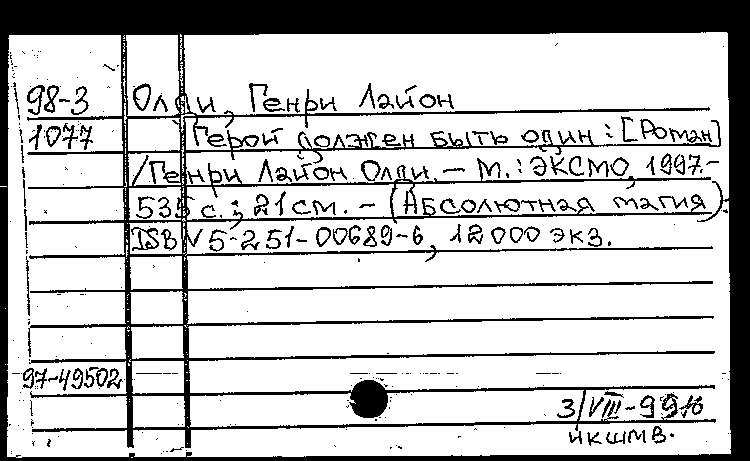 98-3 Олди, Генри Лайон
1077 Герой должен быть один: [Роман]
/Генри Лайон Олди. — М.: ЭКСМО, 1997.-
535 с.; 21 см. — (Абсолютная магия).
ISBN 5-251-00689-6, 12000 экз.
97-49502
3/VIII-99
икшмв.